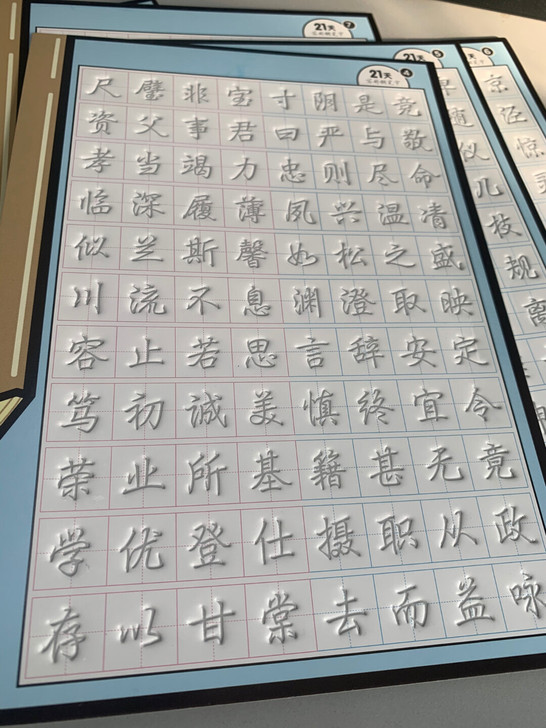 7
21天
5
21天
6
4
21天
尺璧非宝寸阴是竞
资父事君曰严与敬
孝当竭力忠则尽命
临深履薄夙兴温清
似兰斯馨如松之盛
川流不息渊澄取映
容止若思言辞安定
笃初诚美慎终宜令
荣业所基籍甚无竟
学优登仕摄职从政
存以甘棠去而益咏
京
泾
惊
仪
几
枝
规
离